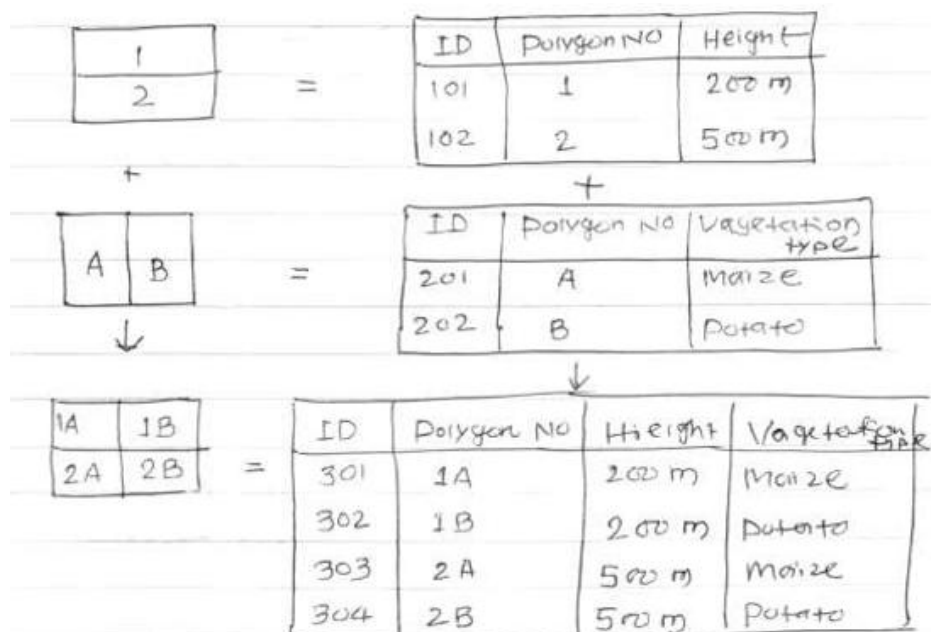 1
2
=
ID Polygon NO Height
101 1 200 m
102 2 500 m
+
+
A B
=
ID Polygon No Vagetation type
201 A Maize
202 B Potato
↓
↓
1A 1B
2A 2B
=
ID Polygon No Hieight Vagetation type
301 1A 200 m Maize
302 1B 200 m Potato
303 2A 500 m Maize
304 2B 500 m Potato